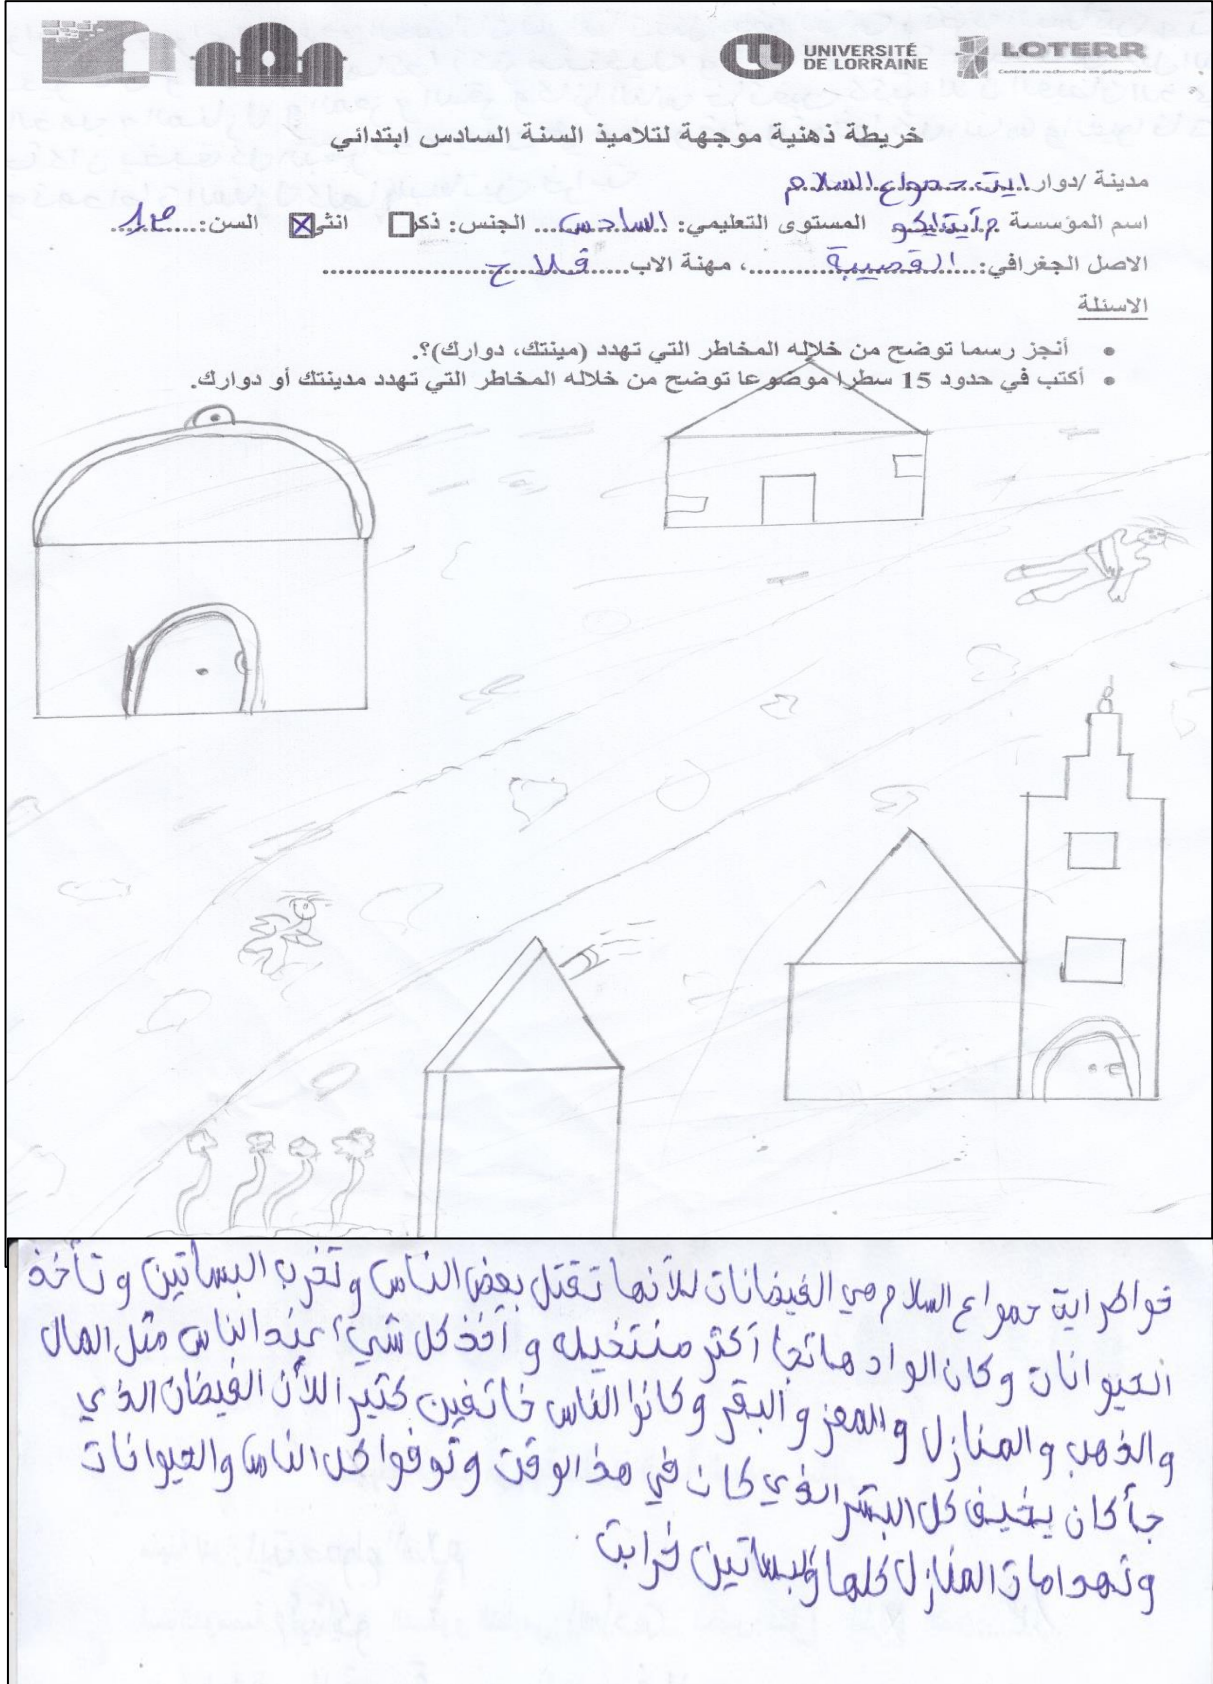 UNIVERSITÉ
DE LORRAINE
LOTERR
Centre de recherche en géographie
خريطة ذهنية موجهة لتلاميذ السنة السادس ابتدائي
مدينة /دوار ايت حمواع السلام
اسم المؤسسة م آيت ايكو المستوى التعليمي: السادس... الجنس: ذكر انثى السن:
الاصل الجغرافي: القصيبة ............، مهنة الاب...... فلاح ..................
الاسئلة
• أنجز رسما توضح من خلاله المخاطر التي تهدد (مينتك، دوارك)؟.
• أكتب في حدود 15 سطرا موضوعا توضح من خلاله المخاطر التي تهدد مدينتك أو دوارك.
خواطر اية حمواع السلام هي الفيضانات للأنها تقتل بعض الناس وتخرب البساتين و تأخذ
الحيوانات وكان الواد هائجا أكثر منتخيله و أخذ كل شيئ عند الناس مثل المال
والذهب والمنازل والمعز والبقر وكانوا الناس خائفين كثيرا للأن الفيضان الذي
جأ كان يخيف كل البشر الذي كان في هذ الوقت وتوفوا كل الناس والحيوانات
وتهدامات المنازل كلها والبساتين خرابت